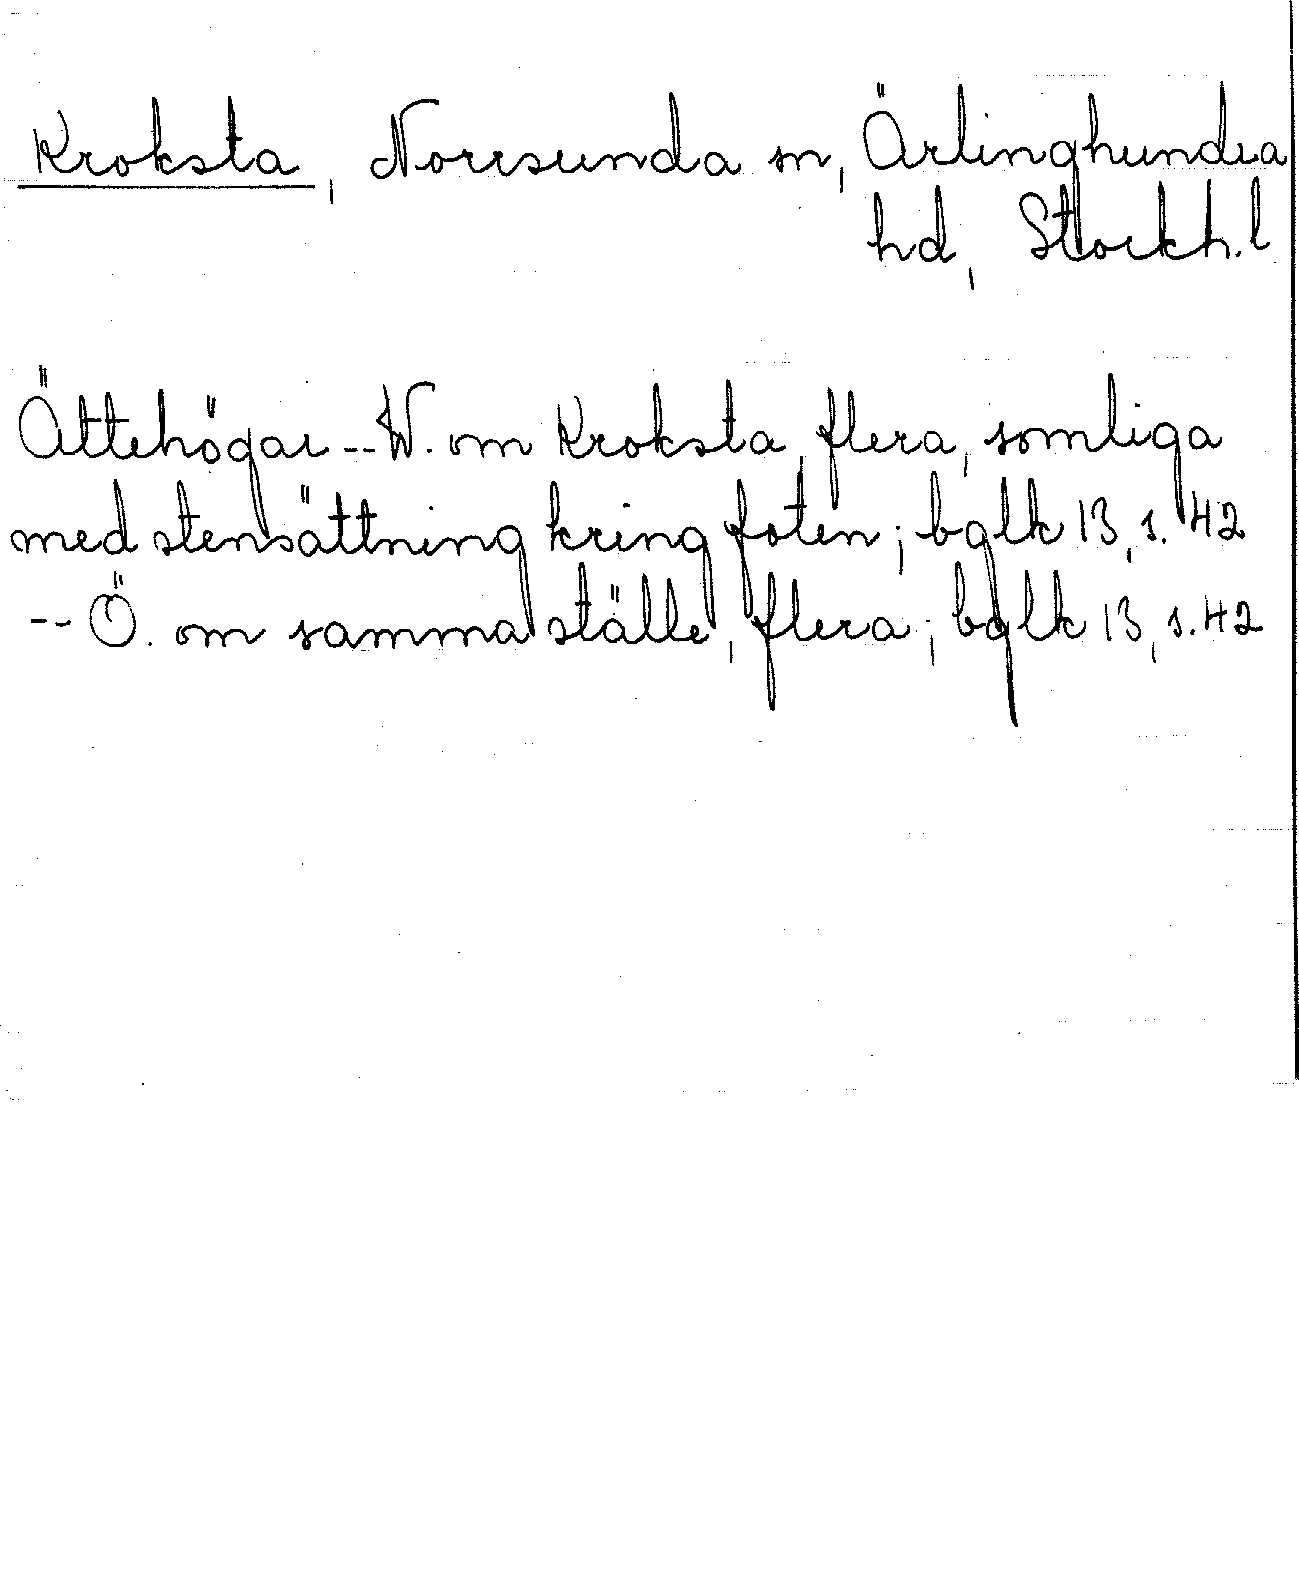 Kroksta, Norrsunda sn, Ärlinghundra
hd, Stockh.l
Ättehögar -- W. om Kroksta flera, somliga
med stensättning kring foten; bglk 13, s. 42
-- Ö. om samma ställe, flera; bglk 13, s. 42